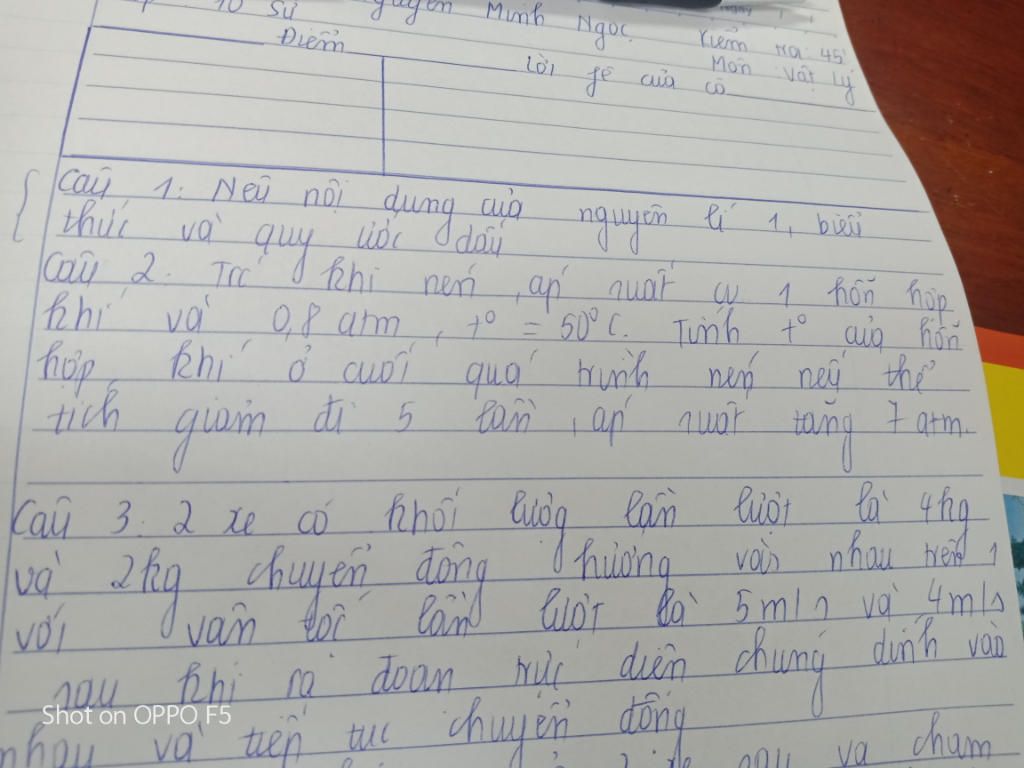 10 Sử Nguyễn Minh Ngọc Kiểm tra 45'
Môn Vật lý
Điểm
Lời fê của cô
Câu 1: Nêu nội dung của nguyên lí 1, biểu
thức và quy ước dấu
Câu 2. Trc khi nén, áp suất củ 1 hỗn hợp
khí và 0,8 atm, t° = 50°C. Tính t° của hỗn
hợp khí ở cuối quá trình nén nếu thể
tích giảm đi 5 lần, áp suất tăng 7 atm.
Câu 3. 2 xe có khối lượng lần lượt là 4kg
và 2kg chuyển động hướng vào nhau trên 1
với vận tốc lần lượt là 5m/s và 4m/s
sau khi rơ đoán trức diện chúng dính vào
nhau và tiếp tục chuyển động
va chạm
Shot on OPPO F5